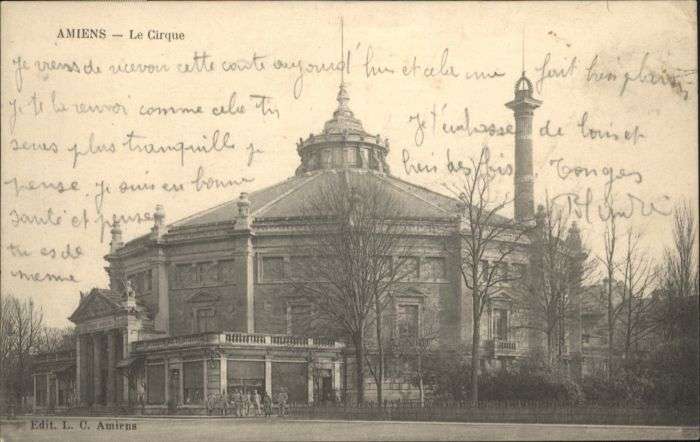 AMIENS — Le Cirque
Je viens de recevoir cette carte aujourd'hui et cela me fait bien plaisir
je te la renvoi comme cela tu
seras plus tranquille je
pense je suis en bonne
santé et pense
tu es de
meme
Je t'embrasse de loin et
bien des fois
Edit. L. C. Amiens